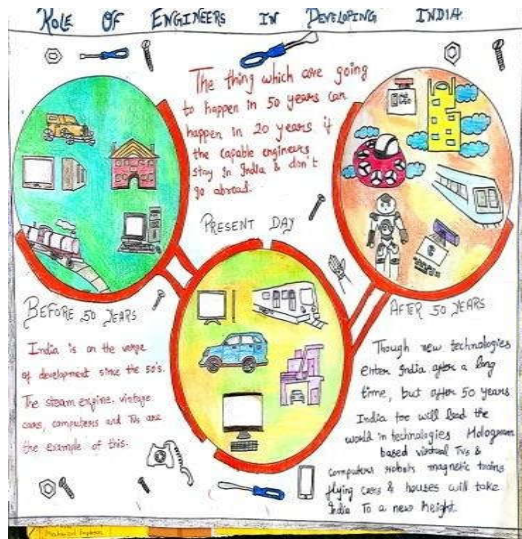 ROLE OF ENGINEERS IN DEVELOPING INDIA
The thing which are going
to happen in 50 years can
happen in 20 years if
the capable engineers
stay in India & don't
go abroad.
PRESENT DAY
BEFORE 50 YEARS
India is on the verge
of development since the 50's.
The steam engine, vintage
cars, computers and TVs are
the example of this.
AFTER 50 YEARS
Though new technologies
enter India after a long
time, but after 50 years
India too will lead the
world in technologies Hologram
based virtual TVs &
computers robots magnetic trains
flying cars & houses will take
India To a new height.